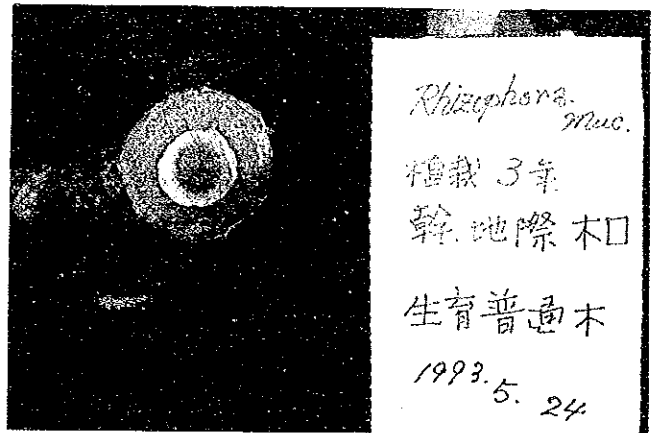 Rhizophora.
Muc.
植栽 3年
幹.地際 木口
生育普通木
1993.5.24